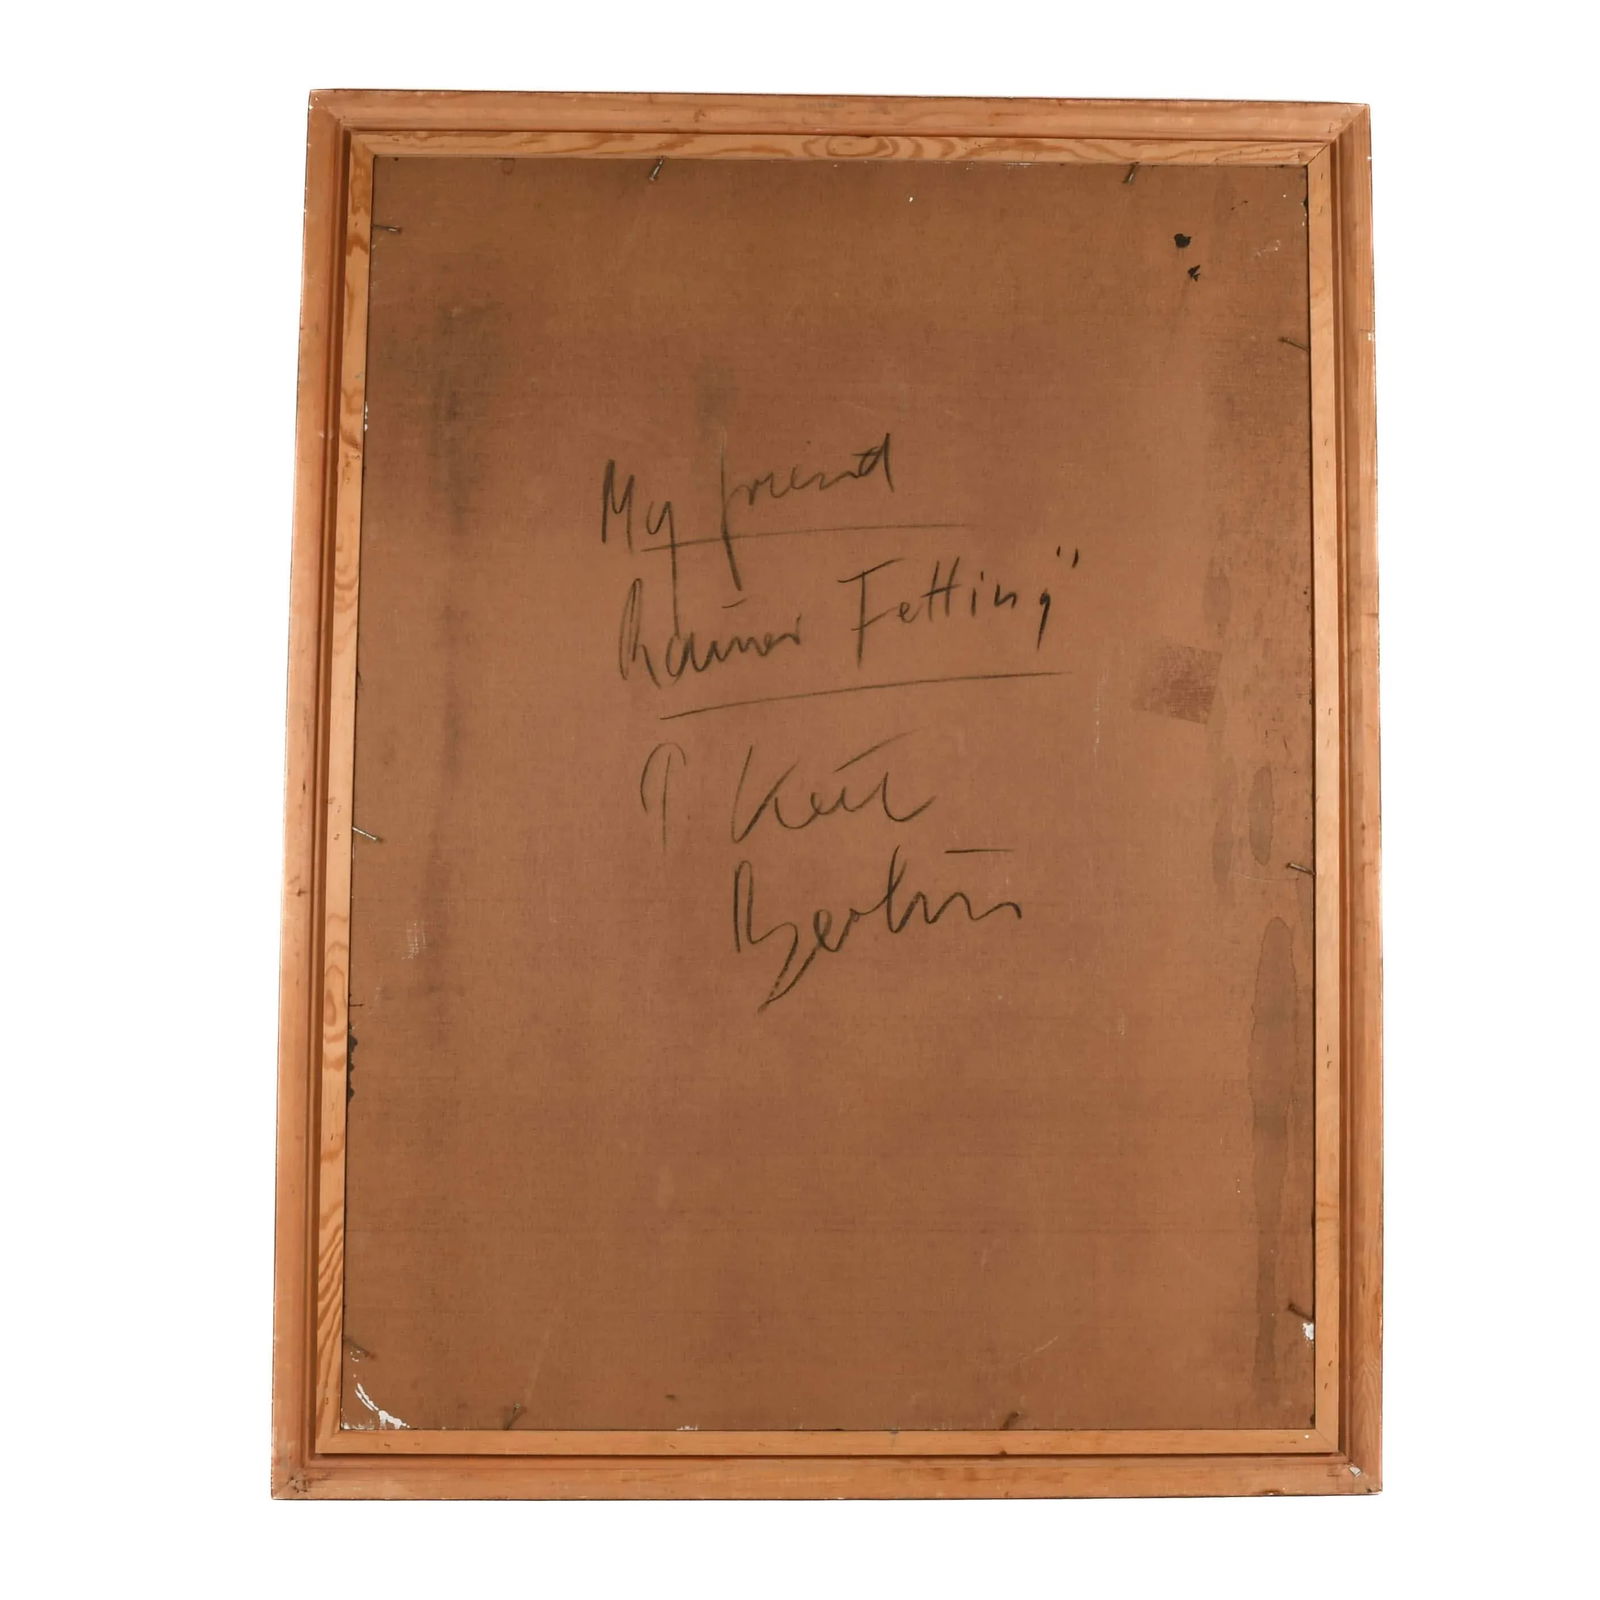 My friend
Rainer Fetting"
Berlin